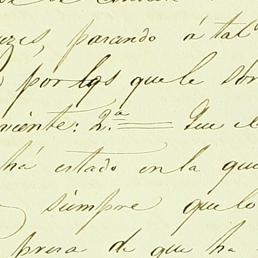 uzes, parando á tal
por los que le són
niente: 2.ª = Que el
há estado en la que
siempre que lo
presa de que ha